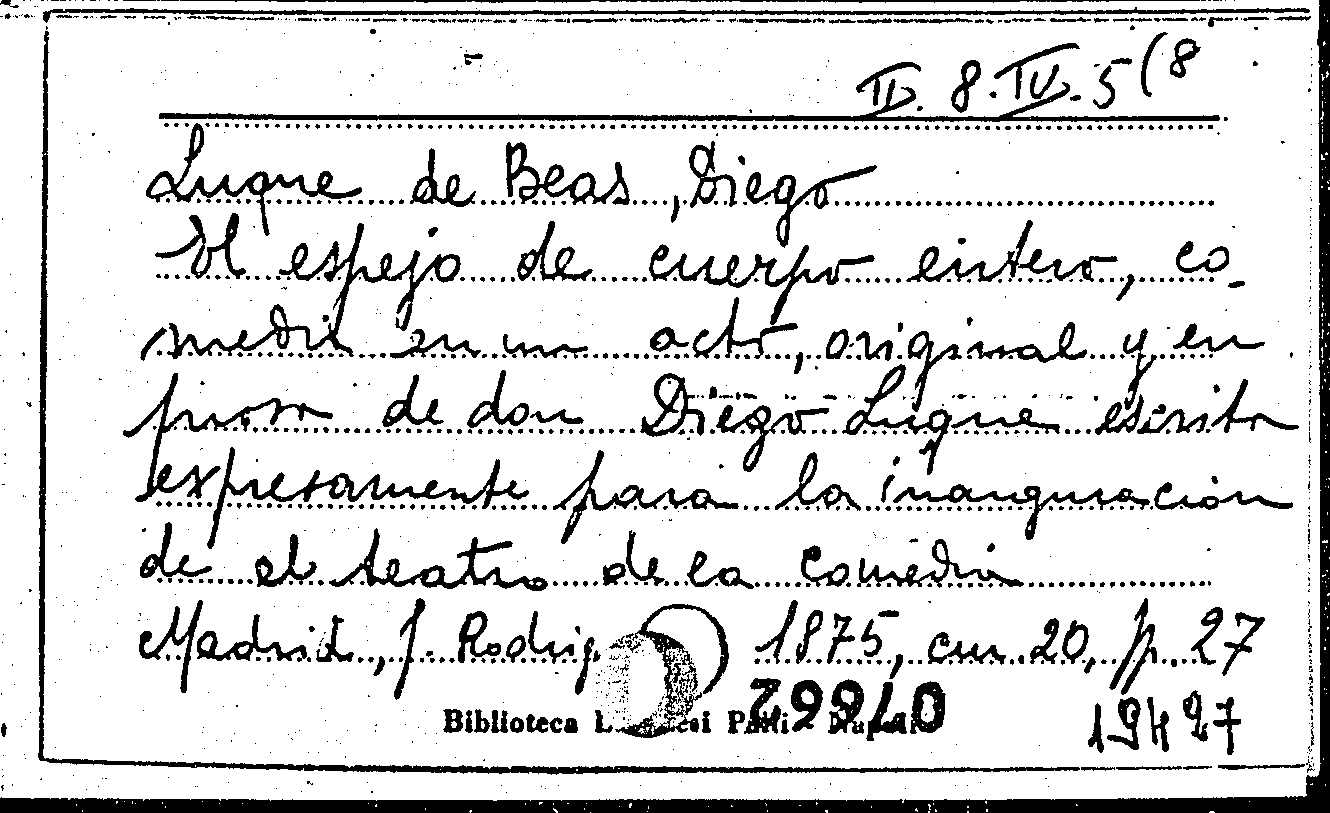 II. 8. IV. 5(8
Luque de Beas, Diego
El espejo de cuerpo entero, co-
media en un acto, original y en
prosa de don Diego Luque escrita
expresamente para la inauguración
de el teatro de la Comedia
Madrid, J. 1875, cm. 20, pp. 27
Biblioteca
19427